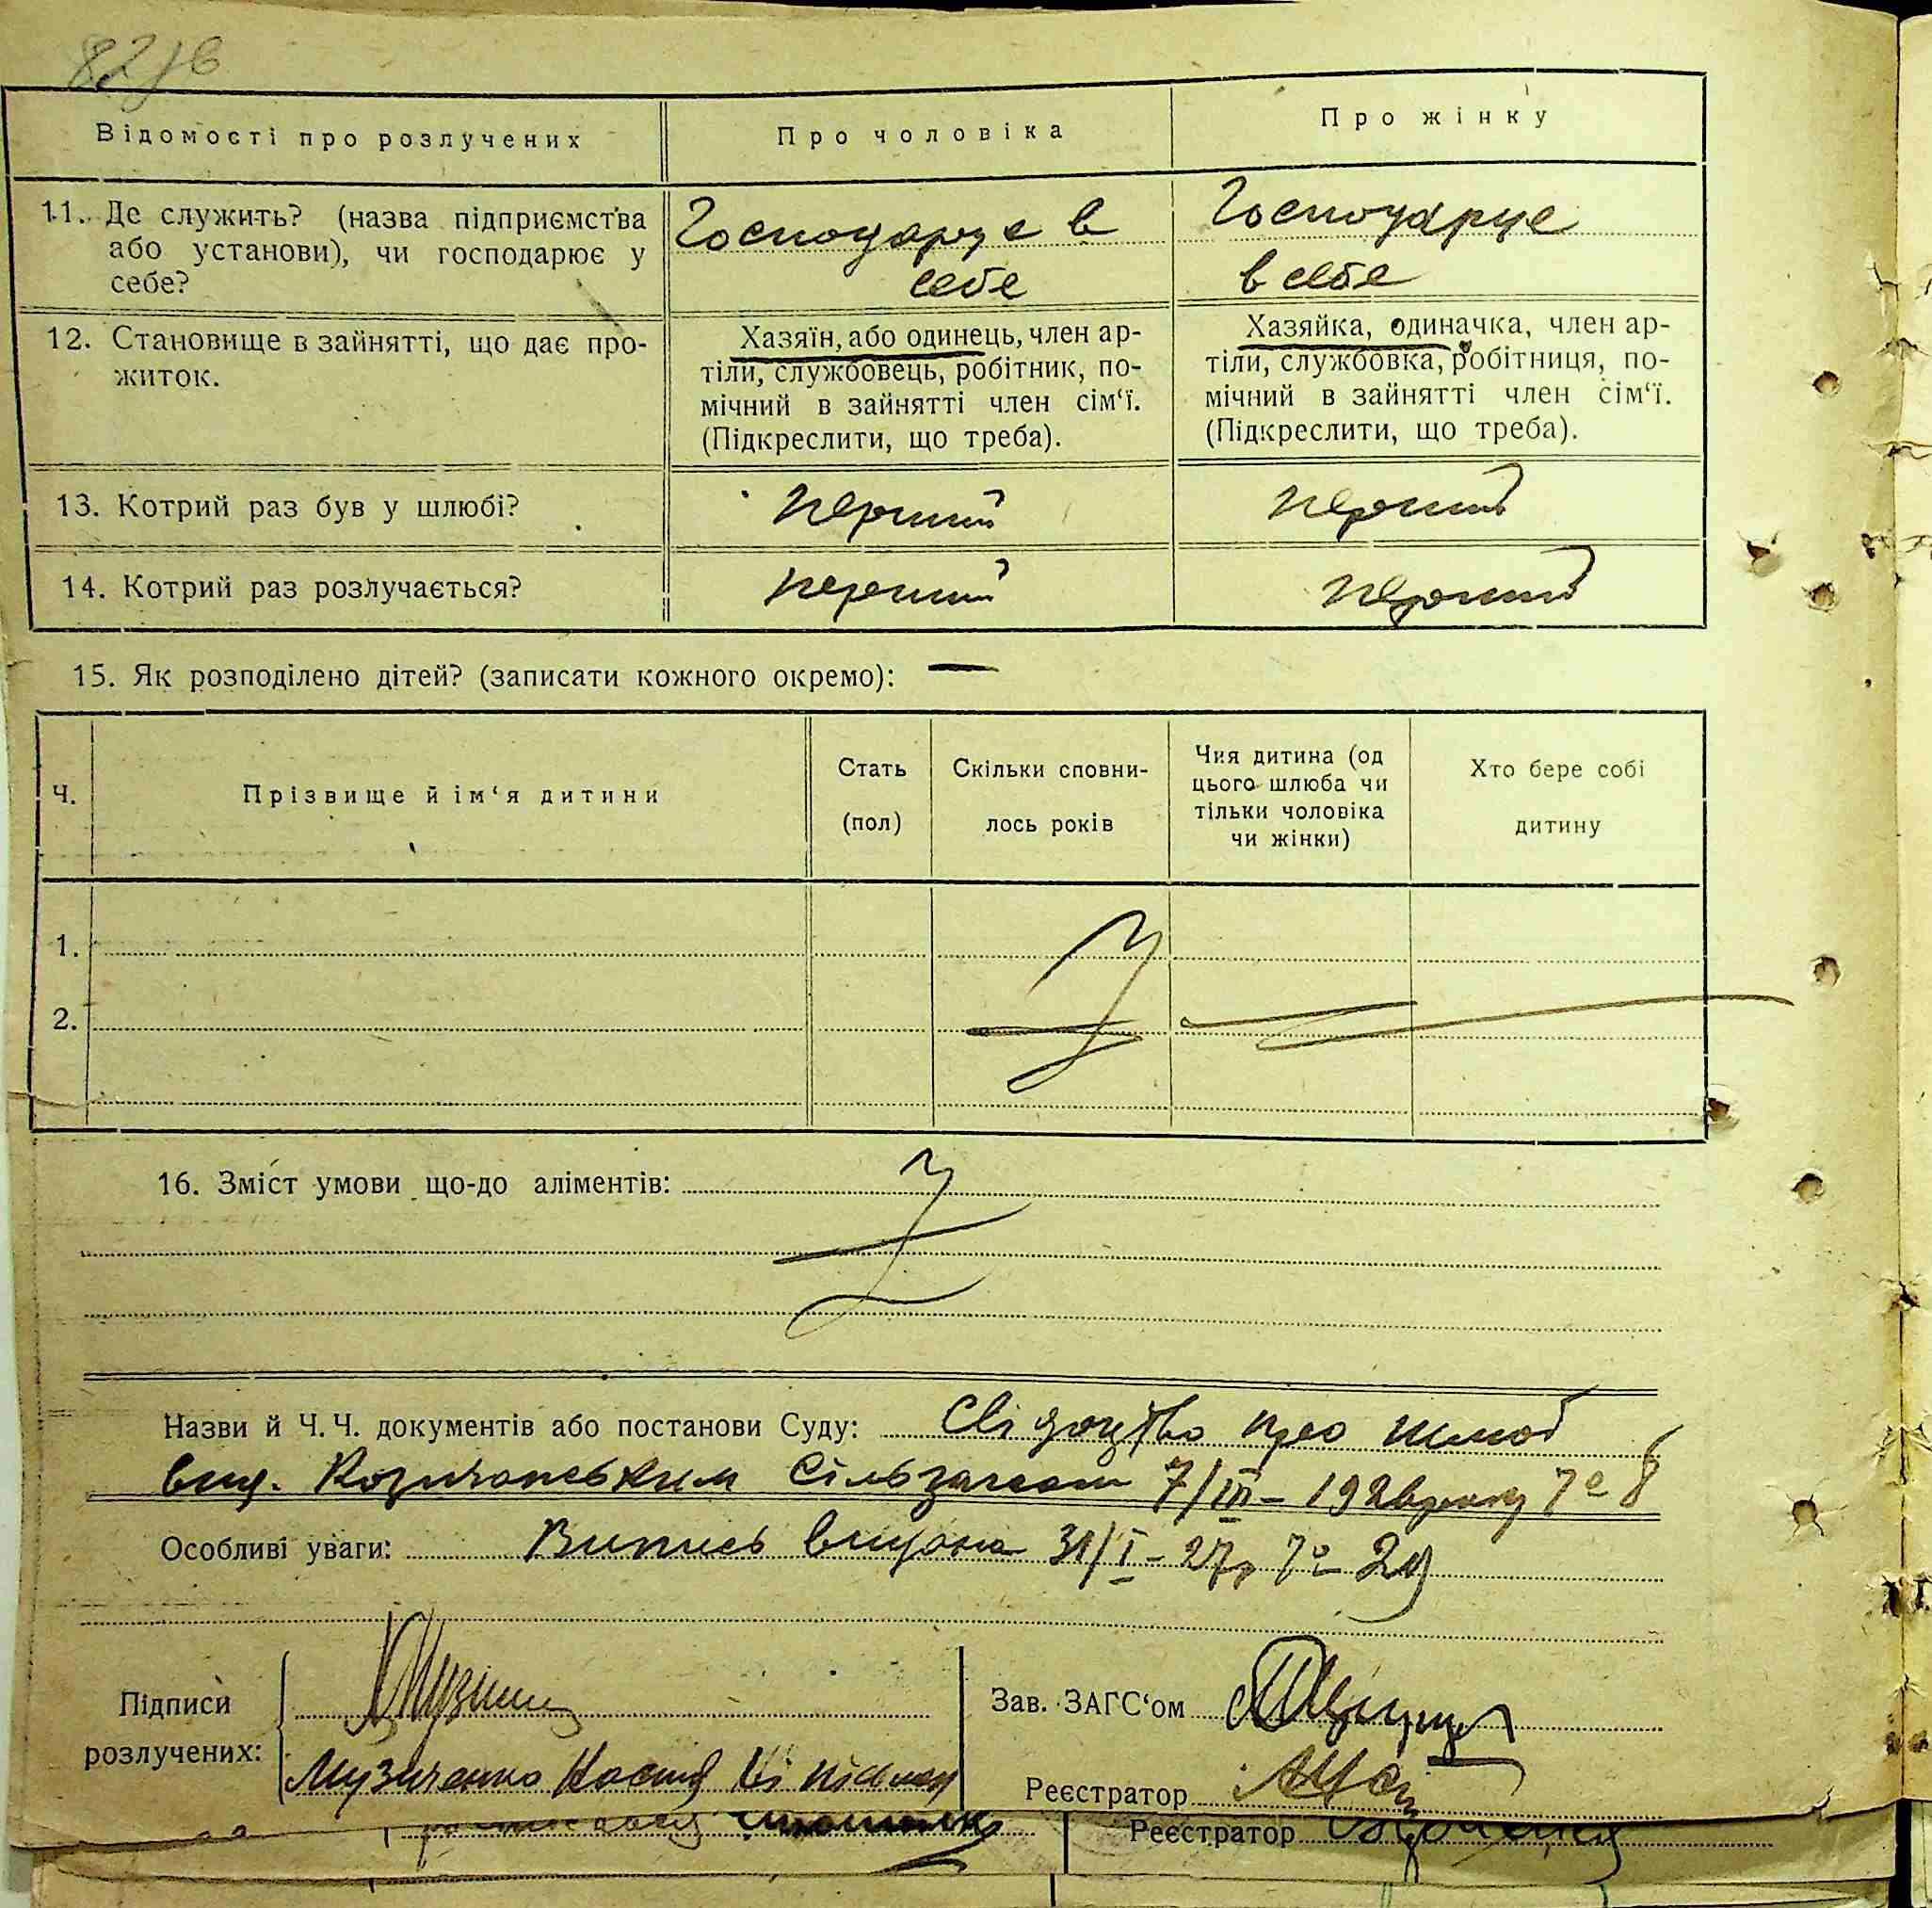 82/в
Відомості про розлучених
Про чоловіка
Про жінку
11. Де служить? (назва підприємства
або установи), чи господарює у
себе?
Господарує в
себе
Господарує
в себе
12. Становище в зайнятті, що дає про-
житок.
Хазяїн, або одинець, член ар-
тіли, службовець, робітник, по-
мічний в зайнятті член сім‘ї.
(Підкреслити, що треба).
Хазяйка, одиначка, член ар-
тіли, службовка, робітниця, по-
мічний в зайнятті член сім‘ї.
(Підкреслити, що треба).
13. Котрий раз був у шлюбі?
перший
перший
14. Котрий раз розлучається?
перший
перший
15. Як розподілено дітей? (записати кожного окремо): —
Ч.
Прізвище й ім‘я дитини
Стать
(пол)
Скільки сповни-
лось років
Чия дитина (од
цього шлюба чи
тільки чоловіка
чи жінки)
Хто бере собі
дитину
1.
2.
16. Зміст умови що-до аліментів:
Назви й Ч. Ч. документів або постанови Суду: Свідоцтво про шлюб
вид. 7/III – 192 року № 8
Особливі уваги: Випись видана 31/I – 27р № 29
Підписи
розлучених:
Музиченко
Зав. ЗАГС‘ом
Реєстратор
Реєстратор